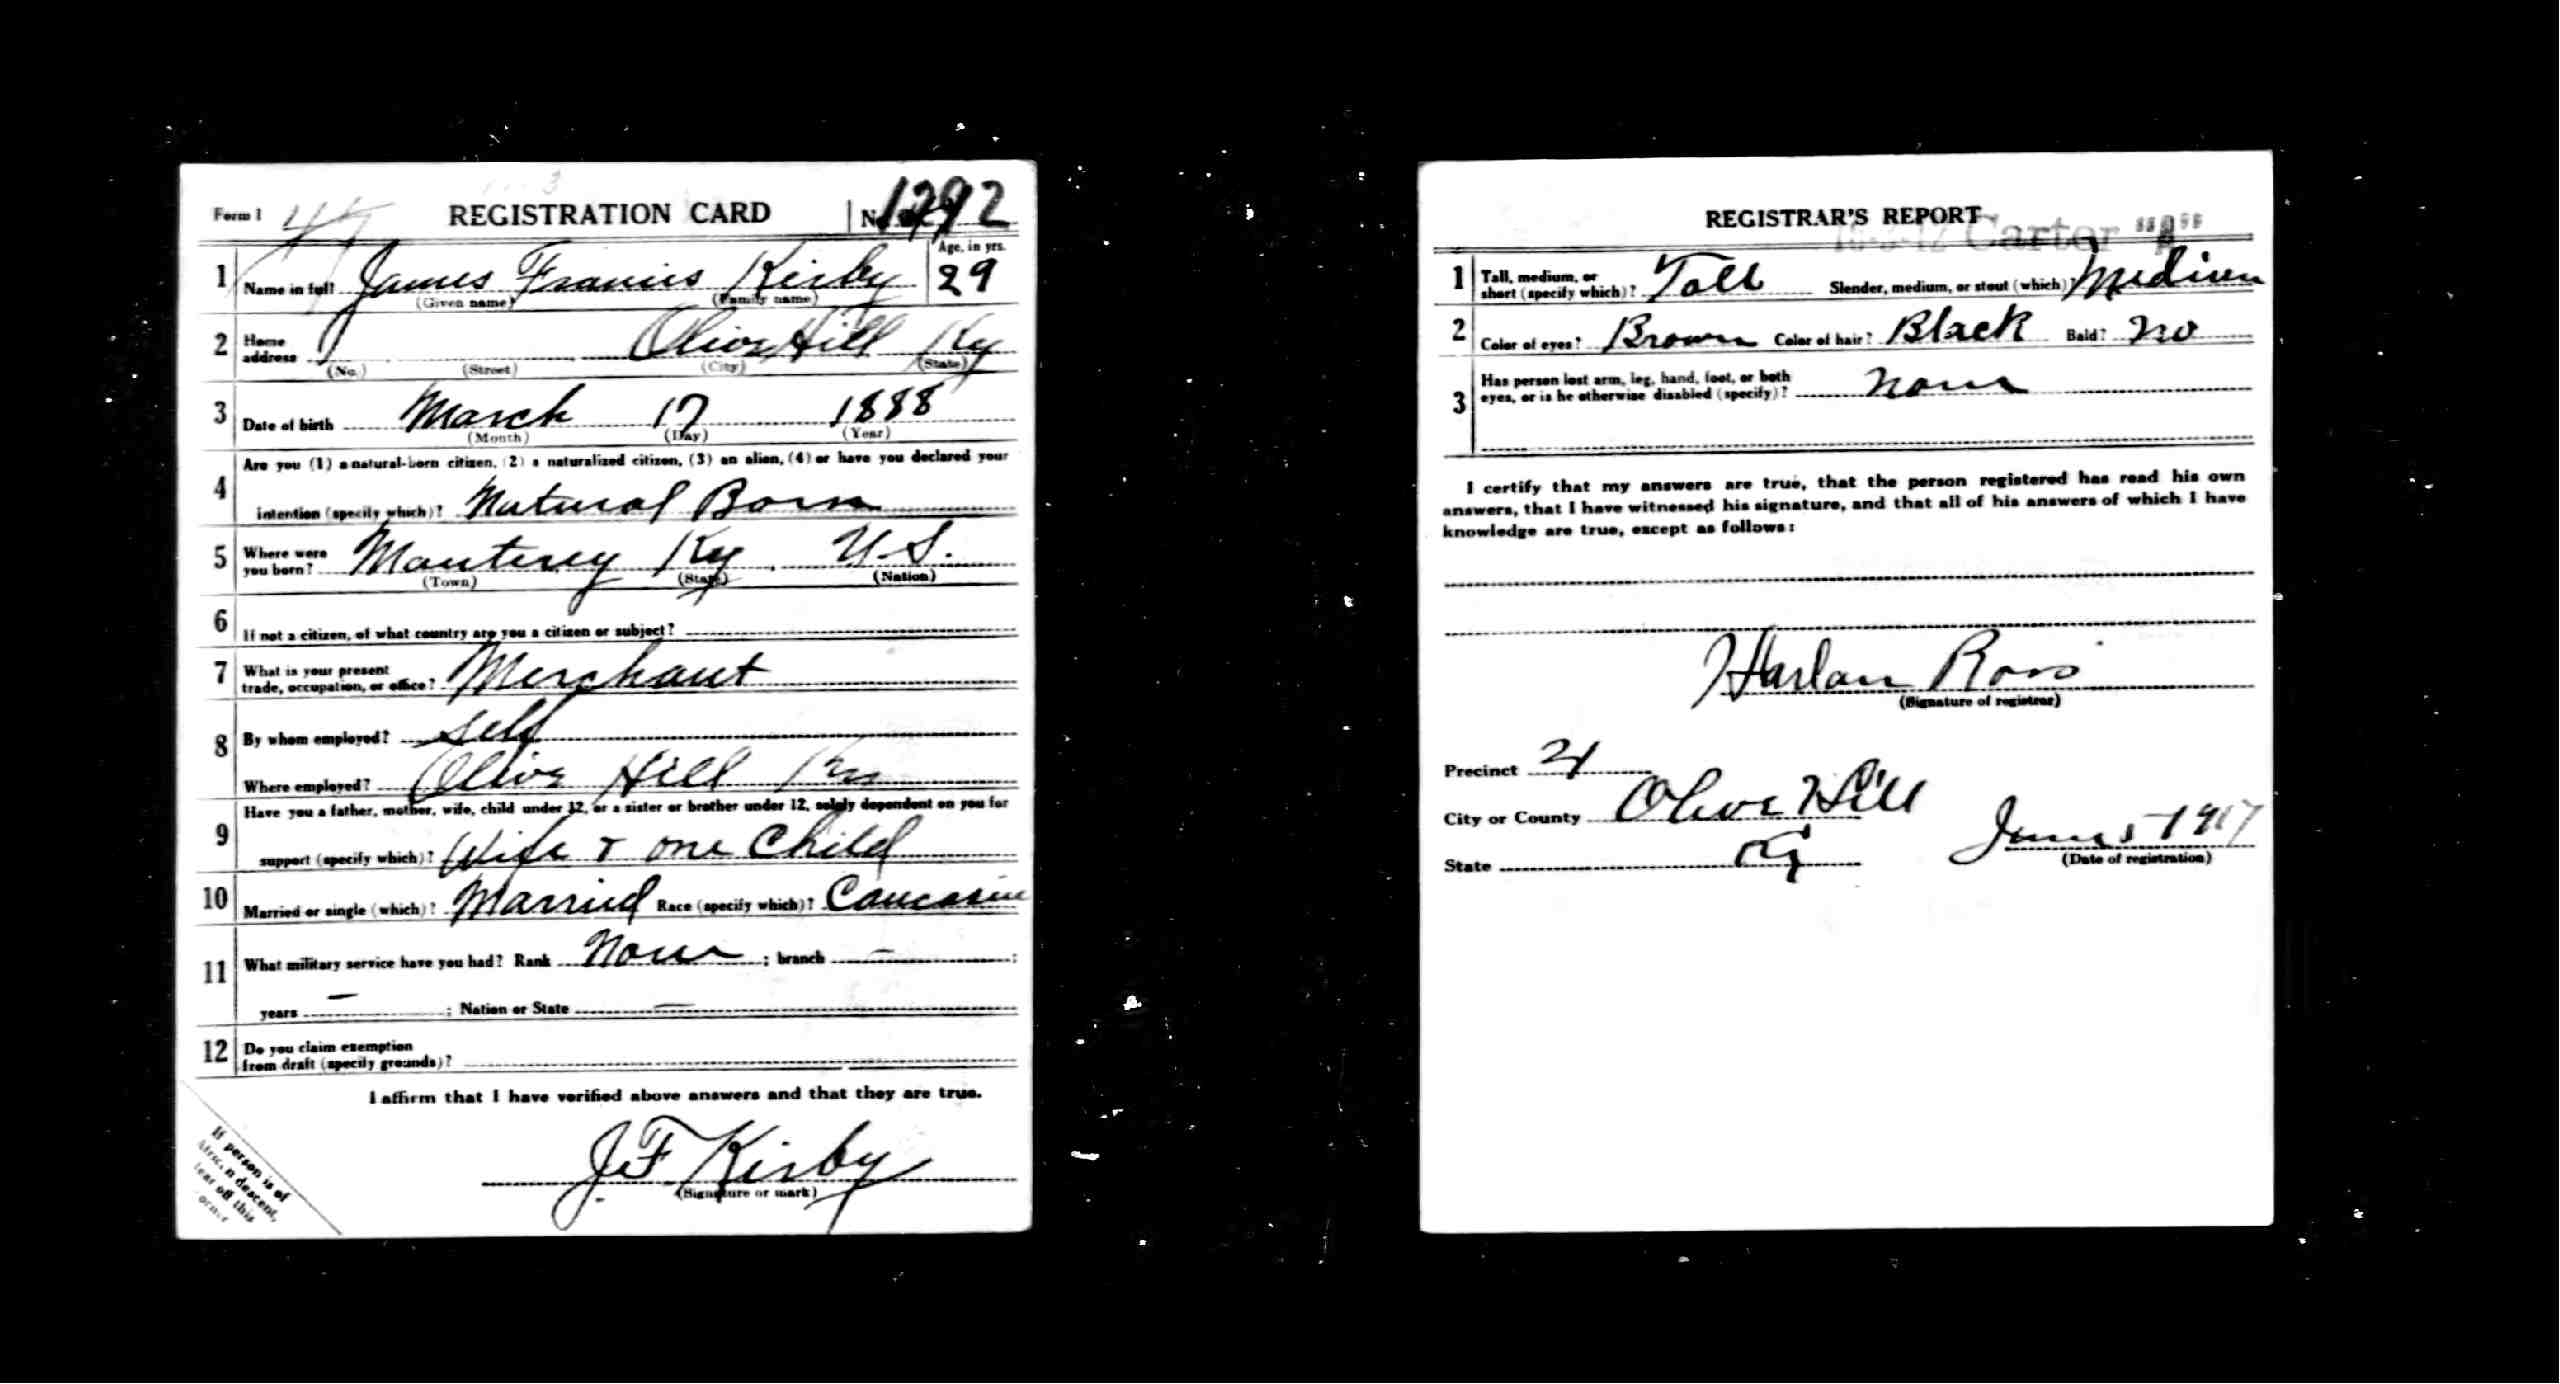 Form 1 REGISTRATION CARD
1 Name in full James Francis Kirby Age, in yrs. 29
(Given name) (Family name)
2 Home address Olive Hill Ky
(No.) (Street) (City) (State)
3 Date of birth March 17 1888
(Month) (Day) (Year)
4 Are you (1) a natural-born citizen, (2) a naturalized citizen, (3) an alien, (4) or have you declared your
intention (specify which)? Natural Born
5 Where were you born? Monterey Ky U.S.
(Town) (State) (Nation)
6 If not a citizen, of what country are you a citizen or subject?
7 What is your present trade, occupation, or office? Merchant
8 By whom employed? Self
Where employed? Olive Hill Ky
9 Have you a father, mother, wife, child under 12, or a sister or brother under 12, solely dependent on you for
support (specify which)? Wife & one Child
10 Married or single (which)? Married Race (specify which)? Caucasian
11 What military service have you had? Rank None ; branch — ;
years — ; Nation or State —
12 Do you claim exemption from draft (specify grounds)?
I affirm that I have verified above answers and that they are true.
J F Kirby
(Signature or mark)
If person is of
African descent,
tear off this
corner
REGISTRAR'S REPORT
Carter
1 Tall, medium, or short (specify which)? Tall Slender, medium, or stout (which)? Medium
2 Color of eyes? Brown Color of hair? Black Bald? No
3 Has person lost arm, leg, hand, foot, or both eyes, or is he otherwise disabled (specify)? None
I certify that my answers are true, that the person registered has read his own
answers, that I have witnessed his signature, and that all of his answers of which I have
knowledge are true, except as follows:
Harlan Ross
(Signature of registrar)
Precinct
City or County Olive Hill
State Ky June 5 1917
(Date of registration)